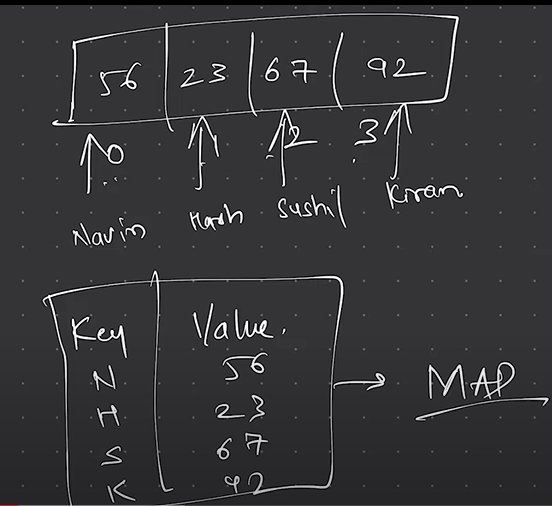 56 23 67 92
0 1 2 3
Navin Harsh Sushil Kiran
Key Value.
N 56
H 23 → MAP
S 67
K 92